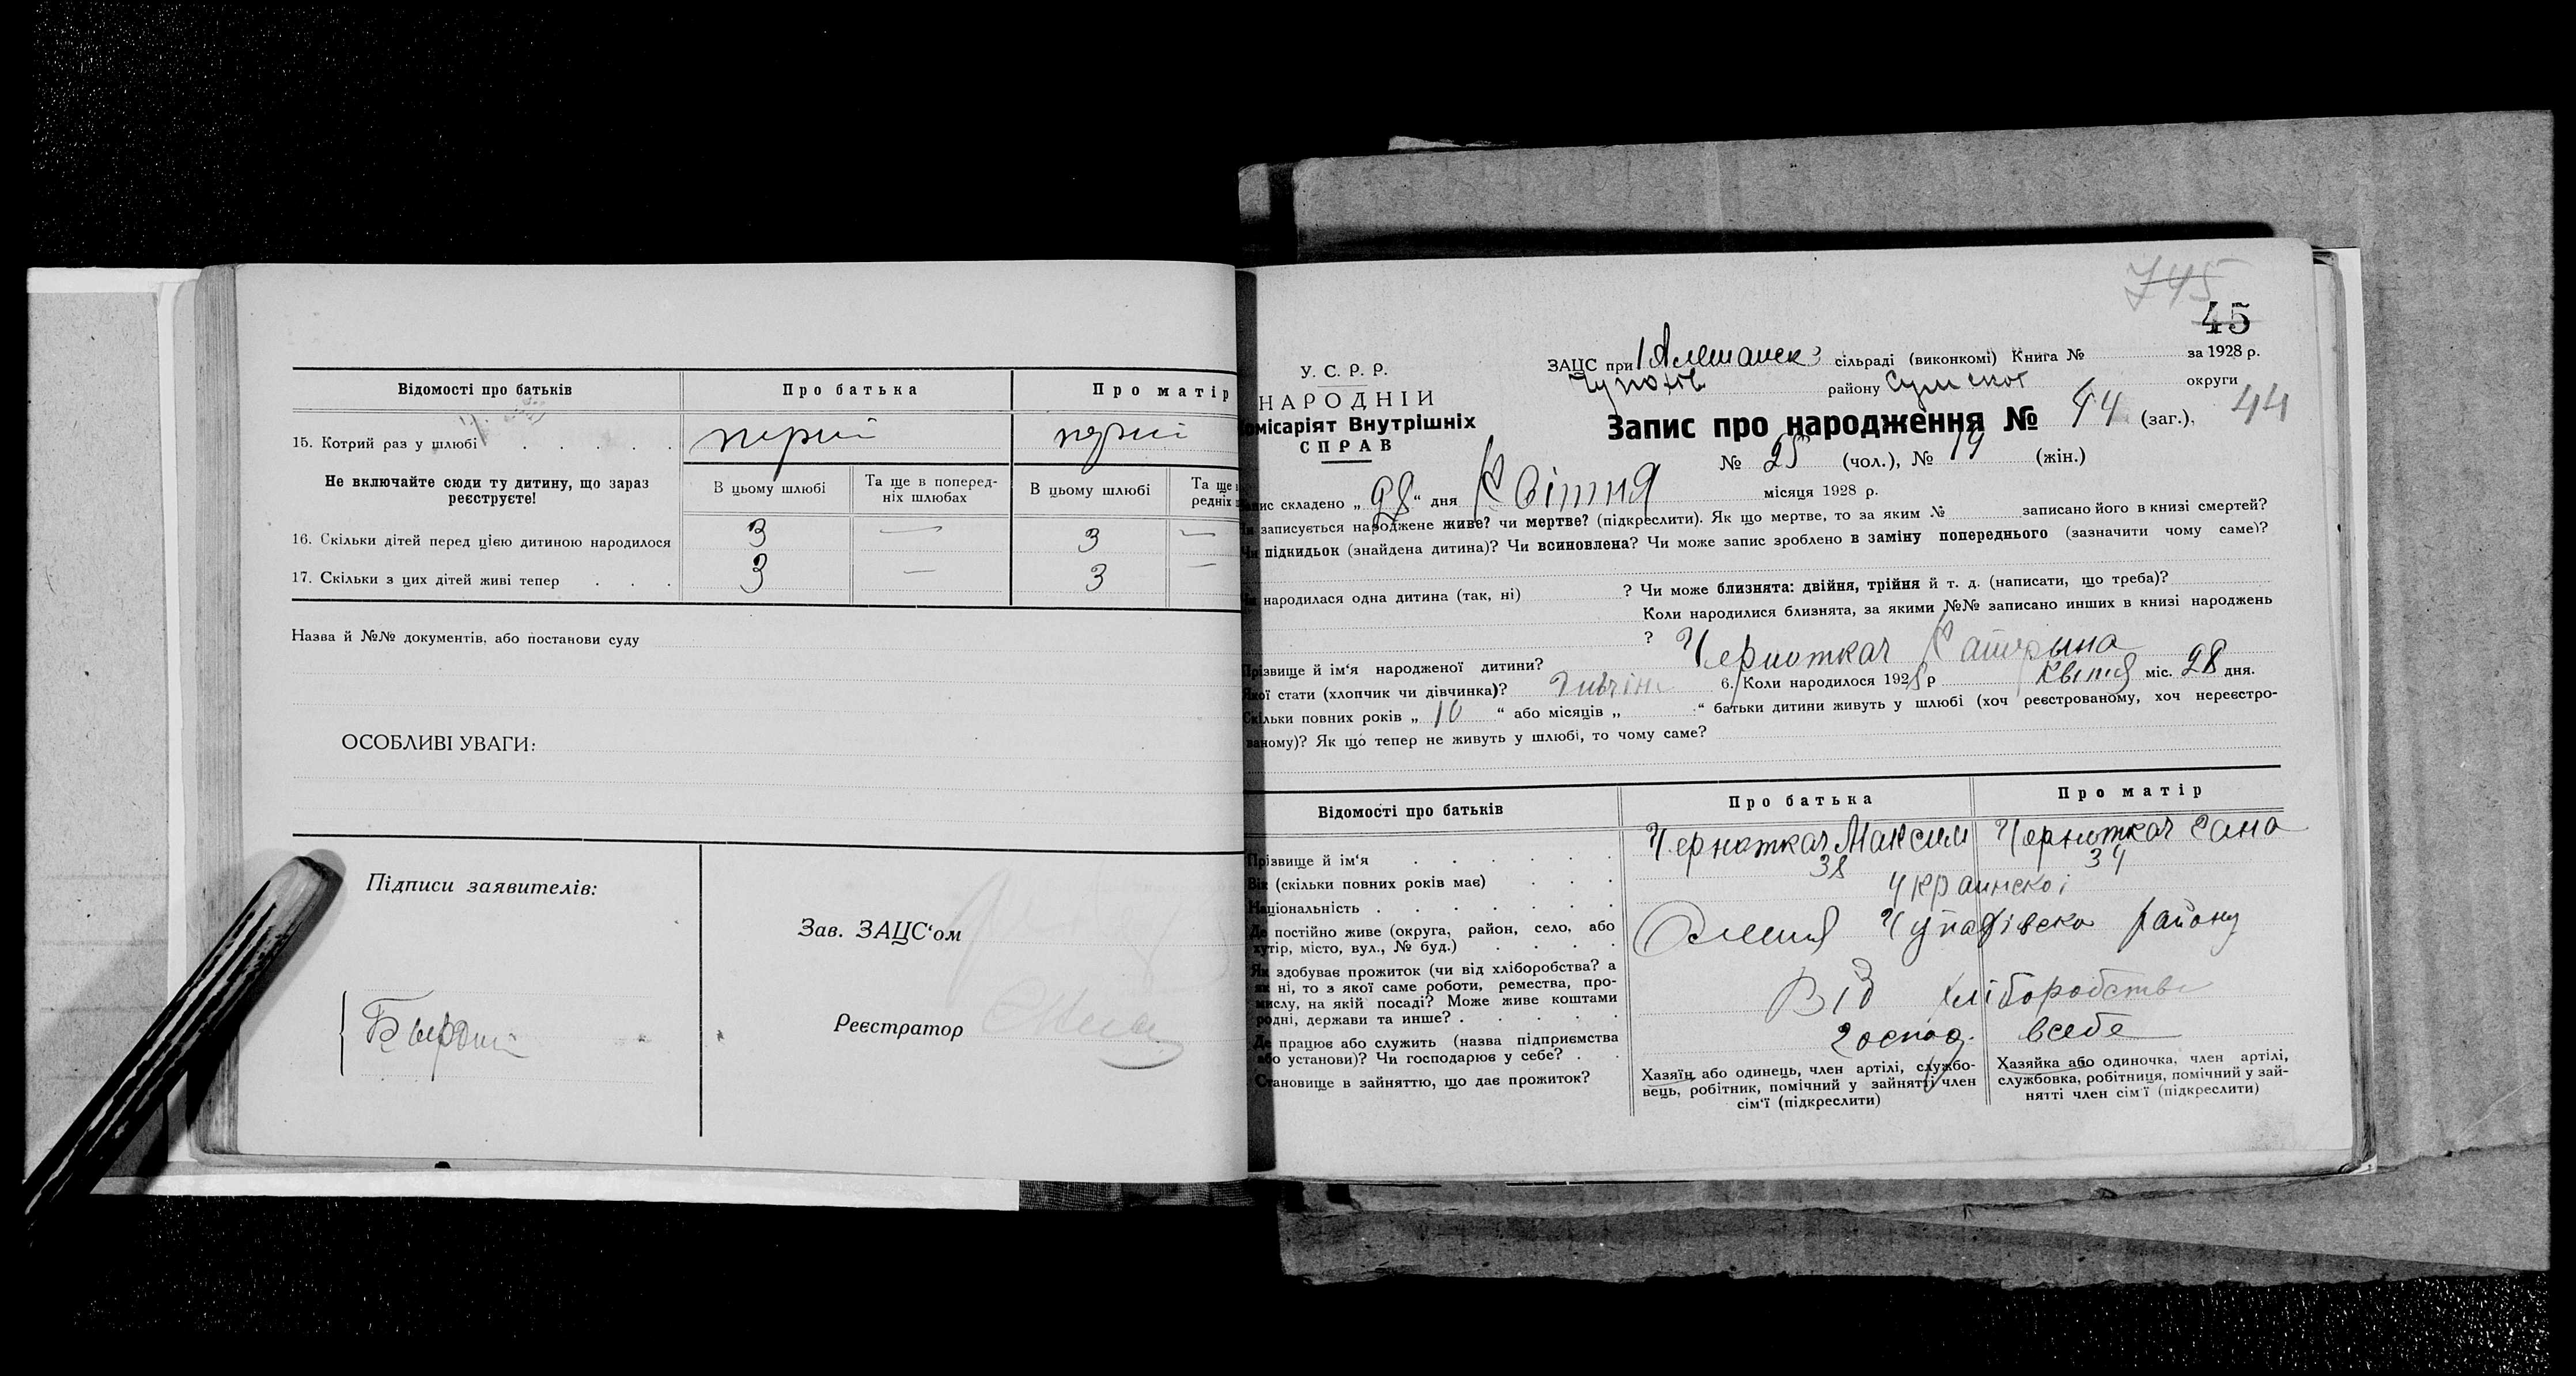 Відомості про батьків
Про батька
Про матір
15. Котрий раз у шлюбі
перший
перший
Не включайте сюди ту дитину, що зараз реєструєте!
В цьому шлюбі
Та ще в поперед-
ніх шлюбах
В цьому шлюбі
Та ще
редніх
16. Скільки дітей перед цією дитиною народилося
3 — 3 —
17. Скільки з цих дітей живі тепер
3 — 3 —
Назва й №№ документів, або постанови суду
ОСОБЛИВІ УВАГИ:
Підписи заявителів:
Зав. ЗАЦС‘ом
Реєстратор
745
45
У. С. Р. Р.
НАРОДНІЙ
омісаріят Внутрішніх
СПРАВ
ЗАЦС при сільраді (виконкомі) Книга № за 1928 р.
району Сумскої округи
Запис про народження № 44 (заг.), 44
№ 25 (чол.), № 19 (жін.)
пис складено „ 28 “ дня Квітня місяця 1928 р.
и записується народжене живе? чи мертве? (підкреслити). Як що мертве, то за яким № записано його в книзі смертей?
Чи підкидьок (знайдена дитина)? Чи всиновлена? Чи може запис зроблено в заміну попереднього (зазначити чому саме)?
народилася одна дитина (так, ні) ? Чи може близнята: двійня, трійня й т. д. (написати, що треба)?
Коли народилися близнята, за якими №№ записано инших в книзі народжень
?
Прізвище й ім‘я народженої дитини? Черноткач Катерына
Якої стати (хлопчик чи дівчинка)? 6. Коли народилося 1928 р Квітня міс. 28 дня.
Скільки повних років „ 10 “ або місяців „ “ батьки дитини живуть у шлюбі (хоч реєстрованому, хоч нереєстро-
ваному)? Як що тепер не живуть у шлюбі, то чому саме?
Відомості про батьків
Про батька
Про матір
Прізвище й ім‘я
Черноткач Максим
Черноткач
Вік (скільки повних років має)
38
34
Національність
Украинскоі
Де постійно живе (округа, район, село, або
хутір, місто, вул., № буд.)
району
Як здобуває прожиток (чи від хліборобства? а
як ні, то з якої саме роботи, ремества, про-
мислу, на якій посаді? Може живе коштами
родні, держави та инше?
Від хліборобства
Де працює або служить (назва підприємства
або установи)? Чи господарює у себе?
господ. всебе
Становище в зайняттю, що дає прожиток?
Хазяїн або одинець, член артілі, службо-
вець, робітник, помічний у зайнятті член
сім‘ї (підкреслити)
Хазяйка або одиночка, член артілі,
службовка, робітниця, помічний у зай-
нятті член сім‘ї (підкреслити)